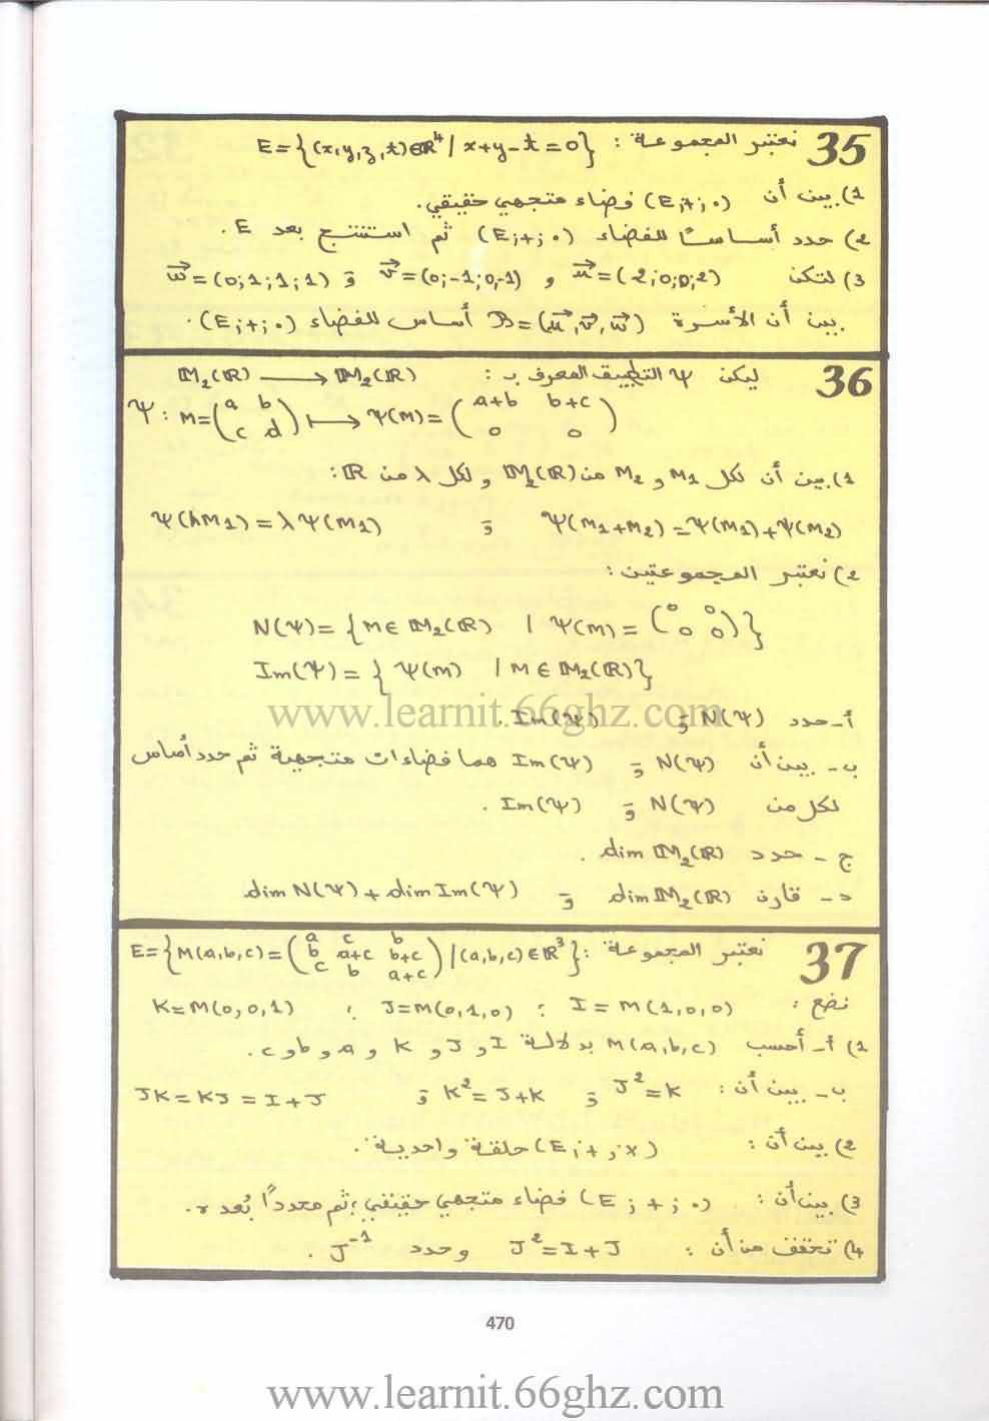 35 نعتبر المجموعة : E={(x,y,z,t)∈ℝ⁴ / x+y-t=0}
1) بين أن (E;+;·) فضاء متجهي حقيقي.
2) حدد أساسًا للفضاء (E;+;·) ثم استنتج بعد E .
3) لتكن u⃗=(2;0;0;2) و v⃗=(0;-1;0;-1) و w⃗=(0;1;1;1)
بين أن الأسرة B=(u⃗,v⃗,w⃗) أساس للفضاء (E;+;·).
36 ليكن Ψ التطبيق المعرف ب : M₂(ℝ) ⟶ M₂(ℝ)
Ψ : M=(a b / c d) ⟼ Ψ(M)=(a+b b+c / 0 0)
1) بين أن لكل M₁ و M₂ من M₂(ℝ) و لكل λ من ℝ:
Ψ(M₁+M₂)=Ψ(M₁)+Ψ(M₂) و Ψ(λM₁)=λΨ(M₁)
2) نعتبر المجموعتين :
N(Ψ)={M∈M₂(ℝ) / Ψ(M)=(0 0 / 0 0)}
Im(Ψ)={Ψ(M) / M∈M₂(ℝ)}
أ- حدد N(Ψ) و Im(Ψ).
ب- بين أن N(Ψ) و Im(Ψ) هما فضاءات متجهية ثم حدد أساس
لكل من N(Ψ) و Im(Ψ) .
ج- حدد dim M₂(ℝ) .
د- قارن dim M₂(ℝ) و dim N(Ψ) + dim Im(Ψ)
37 نعتبر المجموعة : E={M(a,b,c)=(a c b / b a+c b+c / c b a+c) / (a,b,c)∈ℝ³}
نضع : I=M(1,0,0) ; J=M(0,1,0) ; K=M(0,0,1)
1) أ- أحسب M(a,b,c) بدلالة I و J و K و a و b و c.
ب- بين أن : J²=K و K²=J+K و JK=KJ=I+J
2) بين أن : (E;+;×) حلقة واحدية.
3) بين أن : (E;+;·) فضاء متجهي حقيقي ; ثم محددًا بُعد r.
4) تحقق من أن : J²=I+J وحدد J⁻¹ .
www.learnit.66ghz.com
470
www.learnit.66ghz.com